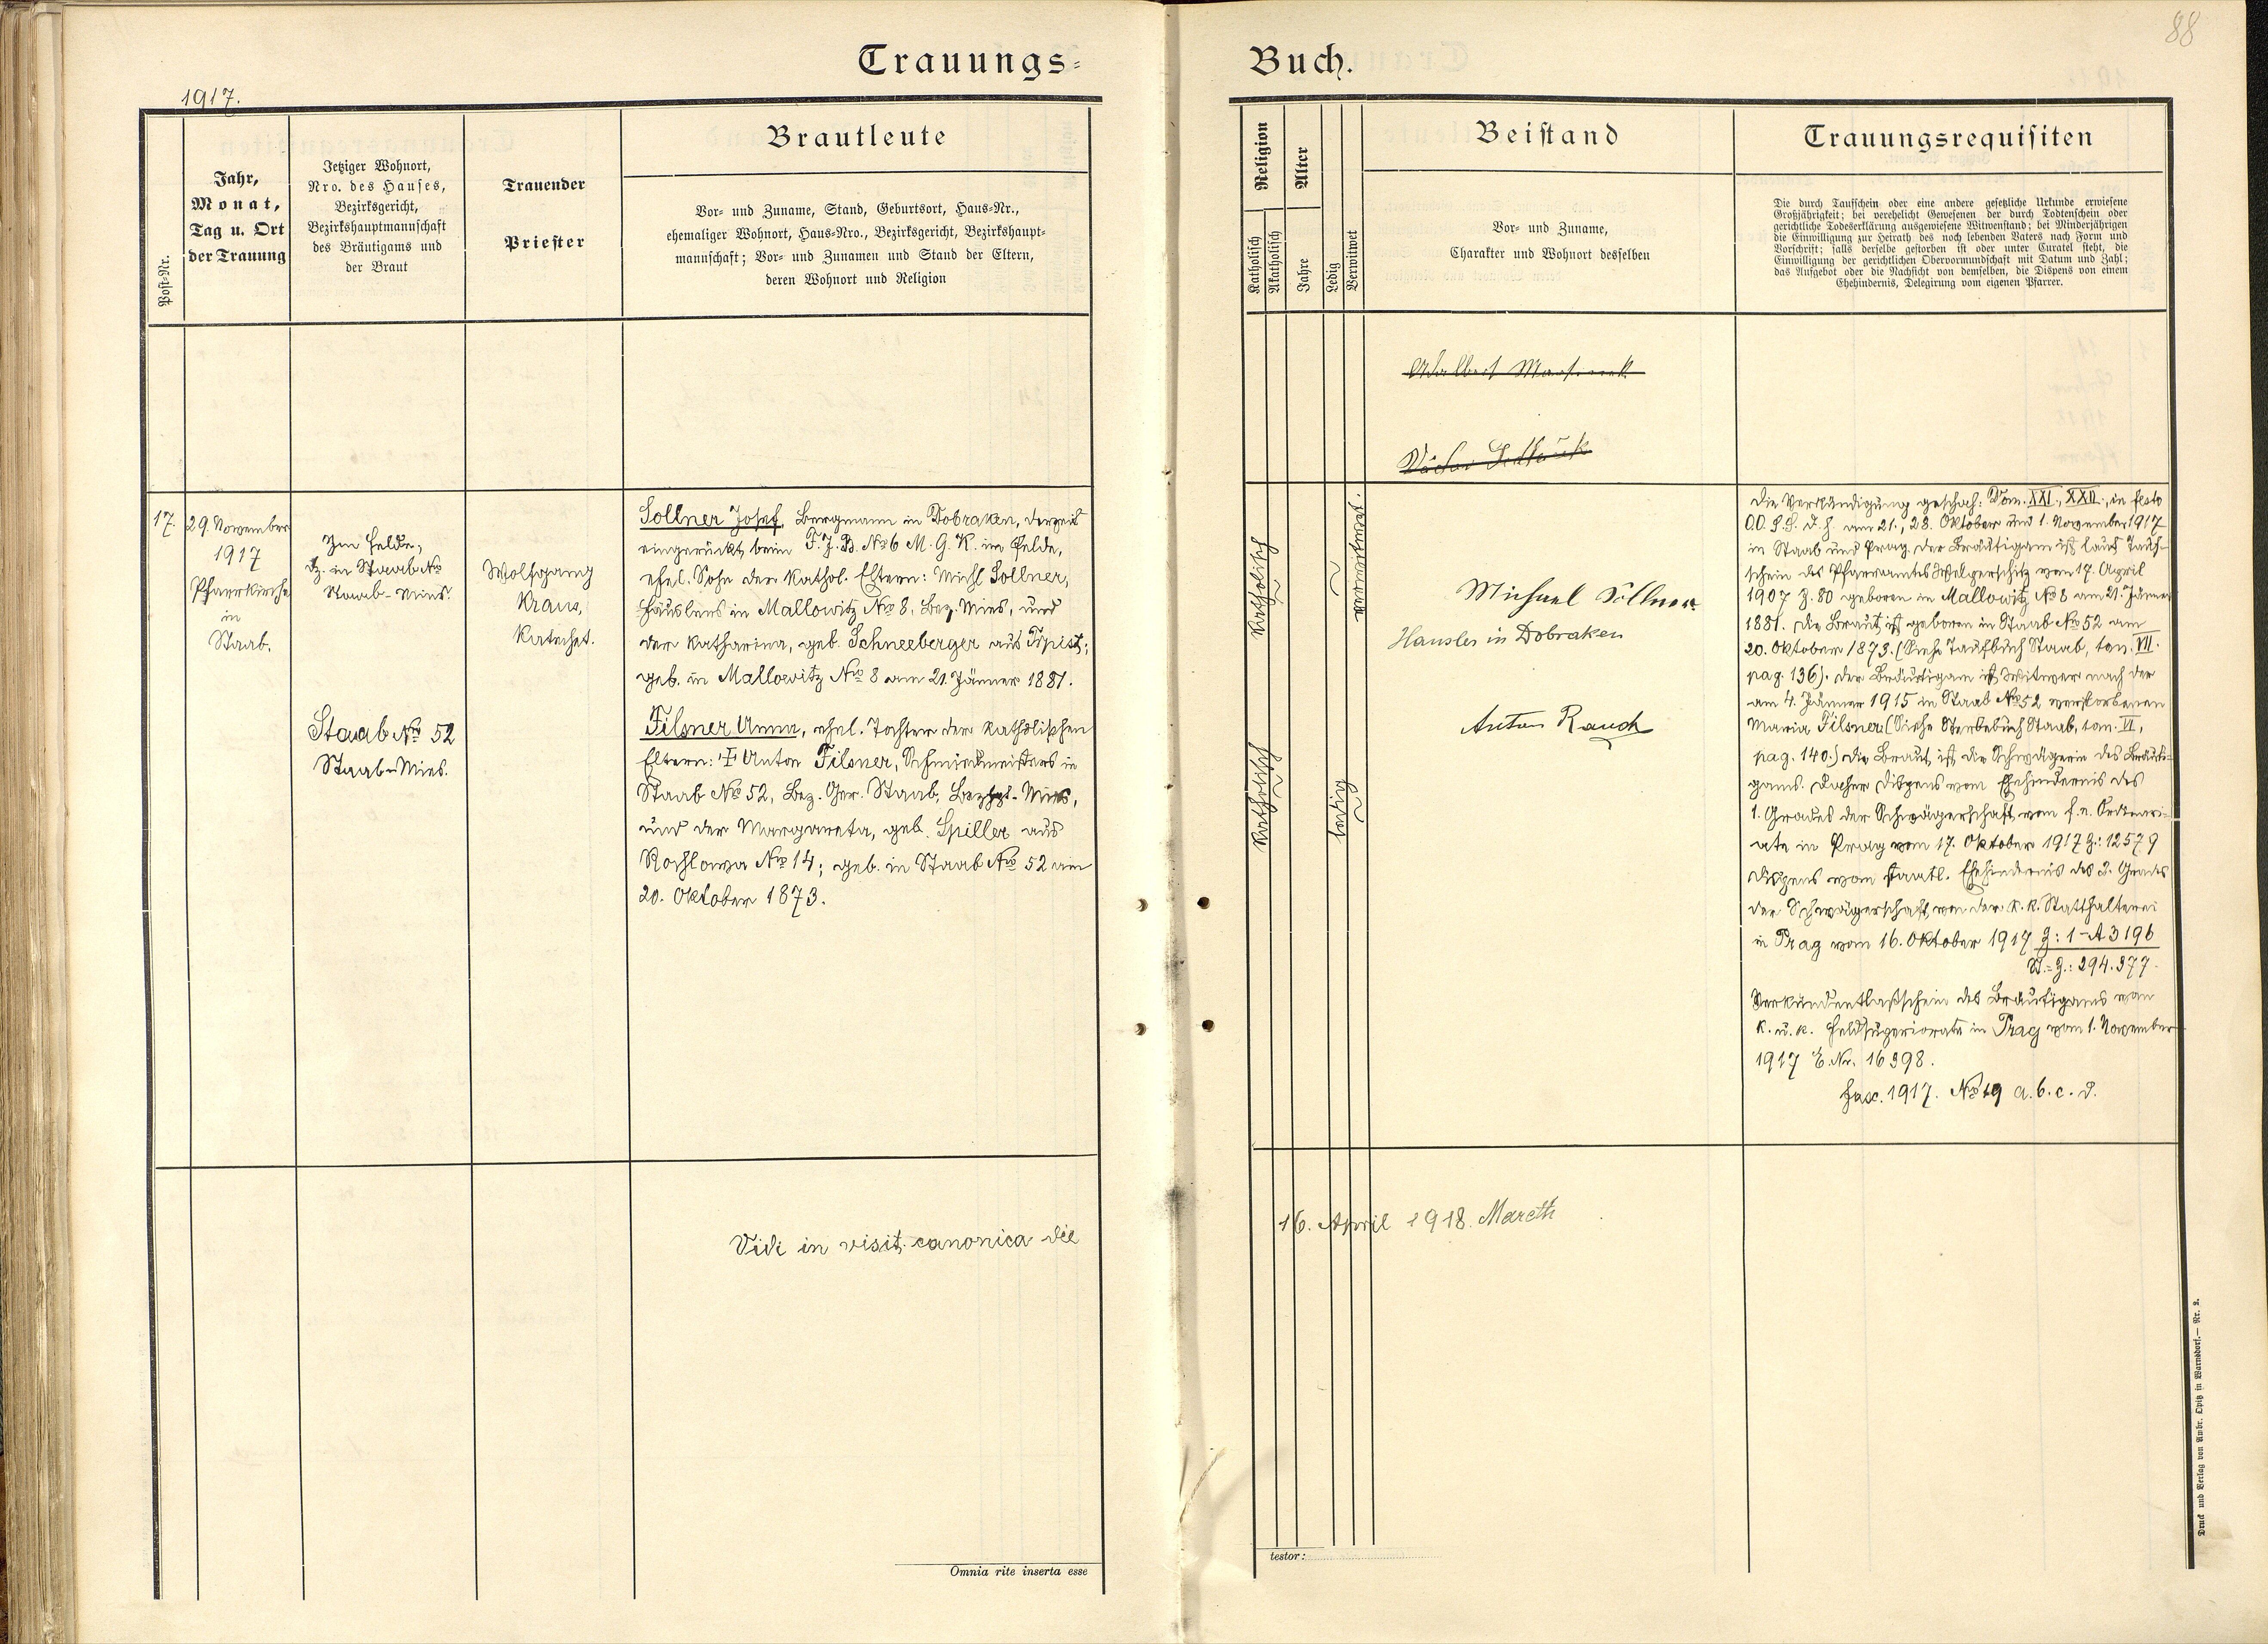 88
Trauungs=
Buch.
1917.
Post-Nr.
Jahr,
Monat,
Tag u. Ort
der Trauung
Jetziger Wohnort,
Nro. des Hauses,
Bezirksgericht,
Bezirkshauptmannschaft
des Bräutigams und
der Braut
Trauender
Priester
Brautleute
Vor- und Zuname, Stand, Geburtsort, Haus-Nr.,
ehemaliger Wohnort, Haus-Nro., Bezirksgericht, Bezirkshaupt-
mannschaft; Vor- und Zunamen und Stand der Eltern,
deren Wohnort und Religion
Religion
Katholisch
Akatholisch
Alter
Jahre
Ledig
Verwitwet
Beistand
Vor- und Zuname,
Charakter und Wohnort desselben
Trauungsrequisiten
Die durch Taufschein oder eine andere gesetzliche Urkunde erwiesene
Großjährigkeit; bei verehelicht Gewesenen der durch Todtenschein oder
gerichtliche Todeserklärung ausgewiesene Witwenstand; bei Minderjährigen
die Einwilligung zur Heirath des noch lebenden Vaters nach Form und
Vorschrift; falls derselbe gestorben ist oder unter Curatel steht, die
Einwilligung der gerichtlichen Obervormundschaft mit Datum und Zahl;
das Aufgebot oder die Nachsicht von demselben, die Dispens von einem
Ehehindernis, Delegirung vom eigenen Pfarrer.
Adalbert
17.
29. November
1917
Pfarrkirche
in
Staab.
Im Felde,
dz. in Staab No
Staab-Mies.
Wolfgang
Kraus,
Katechet.
Sollner Josef, Bergmann in Dobraken, derzeit
eingerückt beim F. J. B. No 6 M. G. K. im Felde,
ehel. Sohn der kathol. Eltern: Michl Sollner,
Häuslers in Mallowitz No 8, Bez. Mies, und
der Katharina, geb. Schneeberger aus
geb. in Mallowitz No 8 am 21. Jänner 1881.
Staab No 52
Staab-Mies.
Filsner Anna, ehel. Tochter der katholischen
Eltern: † Anton Filsner, Schmiedmeisters in
Staab No 52, Bez. Ger. Staab, Mies,
und der Margareta, geb. Spiller aus
Rochlowa No 14; geb. in Staab No 52 am
20. Oktober 1873.
katholisch
verwitwet.
katholisch
ledig
Michael Söllner
Häusler in Dobraken
Anton Rauch
Die Verkündigung geschah: Dom. XXI., XXII., in festo
OO. S.S. d. h. am 21., 28. Oktober und 1. November 1917
in Staab und Prag. Der Bräutigam ist laut Tauf-
schein des Pfarramtes Welperschitz vom 17. April
1907 Z. 80 geboren in Mallowitz No 8 am 21. Jänner
1881. Die Braut ist geboren in Staab No 52 am
20. Oktober 1873. (Siehe Taufbuch Staab, tom. VII.
pag. 136). Der Bräutigam ist Witwer nach der
am 4. Jänner 1915 in Staab No 52 verstorbenen
Maria Filsner (Siehe Sterbebuch Staab, tom. VI,
pag. 140.) Die Braut ist die Schwägerin des Bräuti-
gams. Daher Dispens vom Ehehindernis des
1. Grades der Schwägerschaft vom f. e. Ordinari-
ate in Prag vom 17. Oktober 1917 Z: 12579
Dispens vom staatl. Ehehindernis des 2. Grades
der Schwägerschaft von der k. k. Statthalterei
in Prag vom 16. Oktober 1917 Z: 1-A 3196
St.-Z.: 294.377.
Verkündentlaßschein des Bräutigams vom
k. u. k. Feldsuperiorate in Prag vom 1. November
1917 E. Nr. 16398.
Fasc. 1917. No 19 a. b. c. d.
Vidi in visit. canonica die
16. April 1918. Mareth
Omnia rite inserta esse
testor:
Druck und Verlag von Ambr. Opitz in Warnsdorf. — Nr. 2.